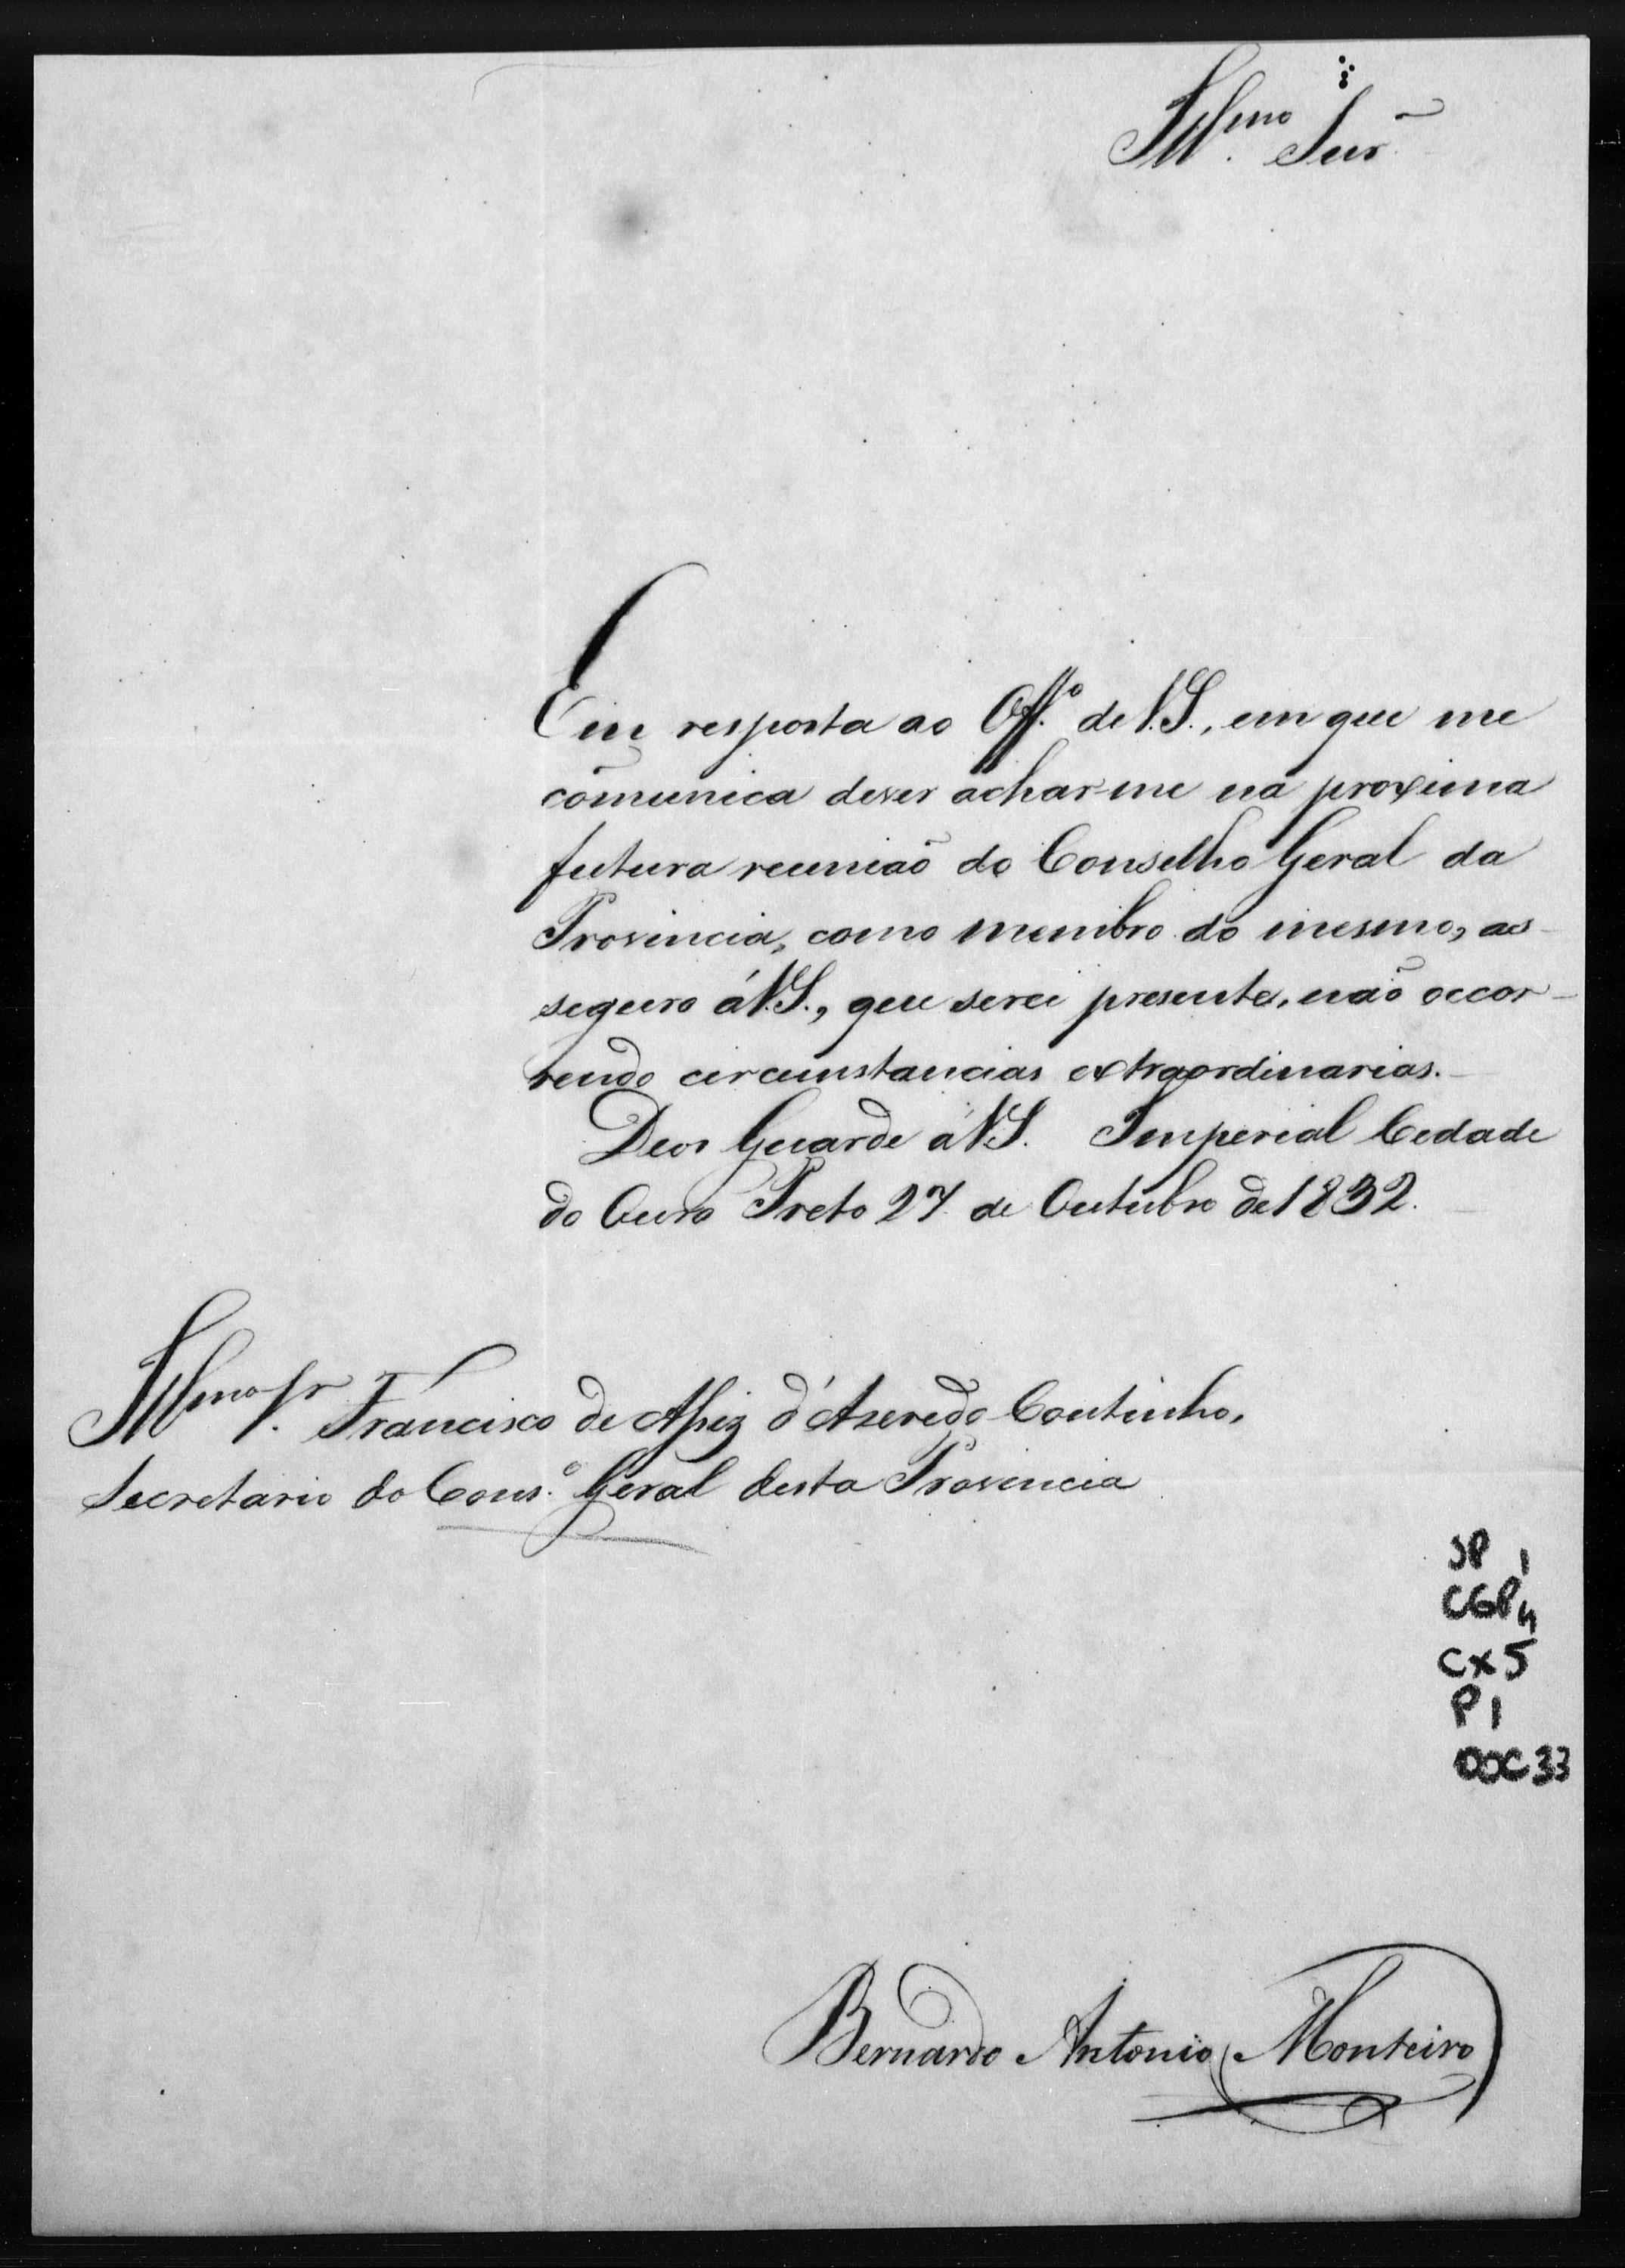 Ill.mo Snr~
Em resposta ao Off.º de V.S., em que me
cõmunica dever achar-me na proxima
futura reunião do Conselho Geral da
Provincia, como membro do mesmo, as-
seguro á V.S., que serei presente, não occor-
rendo circunstancias extraordinarias.
Deos Guarde á V.S. Imperial Cidade
do Ouro Preto 27 de Outubro de 1832.
Ill.mo Sr. Francisco de Assiz d'Azeredo Coutinho,
Secretario do Cons.º Geral desta Provincia
SP 1
CGP 4
CX5
P1
DOC 33
Bernardo Antonio Monteiro